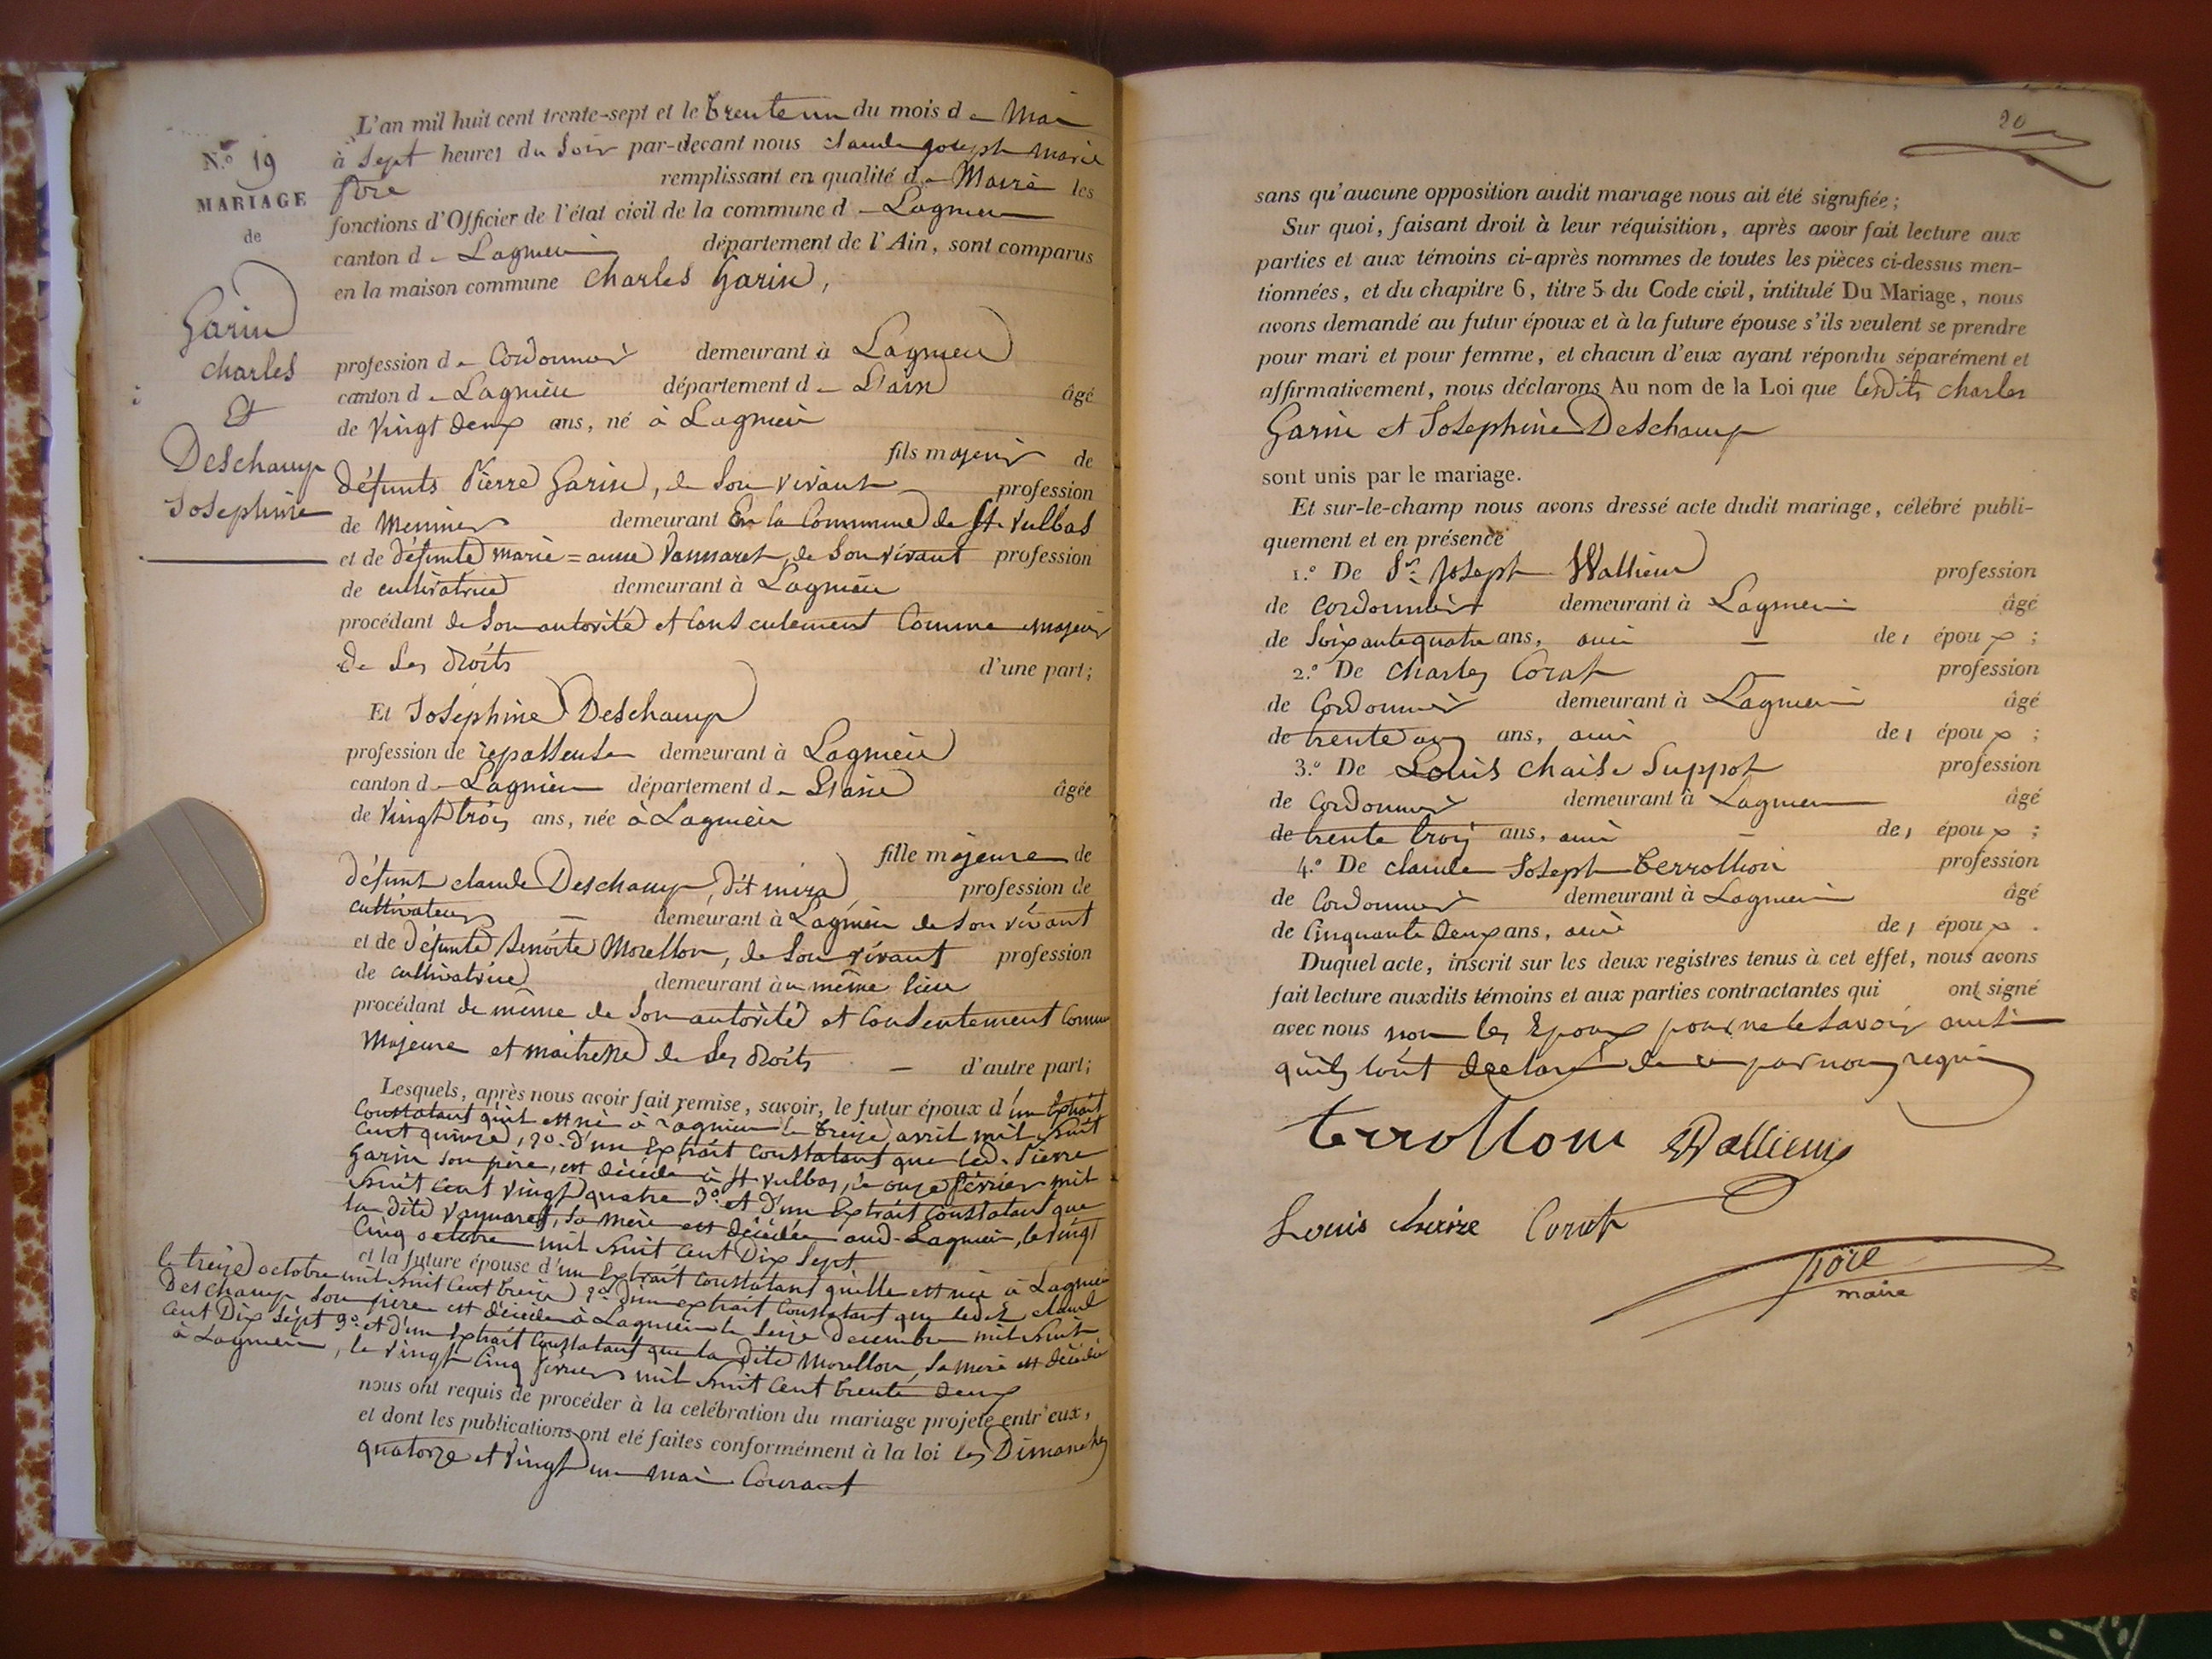 N.º 19
MARIAGE
de
Garin
charles
Et
Deschamp
Josephine
L'an mil huit cent trente-sept et le trente un du mois de Mai
à Sept heures du Soir par-devant nous claude joseph Marie
remplissant en qualité de Maire les
fonctions d'Officier de l'état civil de la commune de Lagnieu
canton de Lagnieu département de l'Ain, sont comparus
en la maison commune Charles Garin,
profession de Cordonnier demeurant à Lagnieu
canton de Lagnieu département de L'ain âgé
de Vingt deux ans, né à Lagnieu
fils majeur de
défunts Pierre Garin, de Son vivant profession
de Meunier demeurant En la Commune de St. Vulbas
et de défunte marie=anne Vannaret, de Son vivant profession
de cultivatrice demeurant à Lagnieu
procédant de Son autorité et Consentement Comme majeur
de Ses droits d'une part;
Et Joséphine Deschamp
profession de repasseuse demeurant à Lagnieu
canton de Lagnieu département de L'ain âgée
de Vingt trois ans, née à Lagnieu
fille majeure de
défunt claude Deschamp, dit mira profession de
cultivateur demeurant à Lagnieu de Son vivant
et de défunte Benoite Morellon, de Son vivant profession
de cultivatrice demeurant au même lieu
procédant de même de Son autorité et Consentement Comme
Majeure et maitresse de Ses droits d'autre part;
Lesquels, après nous avoir fait remise, savoir, le futur époux d'un Extrait
Constatant qu'il est né à Lagnieu le treize avril mil huit
cent quinze, 2º. d'un Extrait Constatant que led. Pierre
Garin son père, est décédé à St. Vulbas, le onze février mil
huit cent vingt quatre 3º. et d'un Extrait Constatant que
la dite Vannaret, Sa mère est décédée aud. Lagnieu, le vingt
Cinq octobre mil huit cent Dix Sept
et la future épouse d'un Extrait Constatant qu'elle est née à Lagnieu
le treize octobre mil huit Cent treize 2º. d'un extrait Constatant que ledit claude
Deschamp Son père est décédé à Lagnieu le Seize Decembre mil huit
Cent Dix Sept 3º. et d'un Extrait Constatant que la dite Morellon, Sa mère est décédée
à Lagnieu, le vingt Cinq février mil huit Cent trente deux
nous ont requis de procéder à la celébration du mariage projeté entr'eux,
et dont les publications ont été faites conformément à la loi les Dimanches
quatorze et Vingt un mai Courant
20
sans qu'aucune opposition audit mariage nous ait été signifiée;
Sur quoi, faisant droit à leur réquisition, après avoir fait lecture aux
parties et aux témoins ci-après nommes de toutes les pièces ci-dessus men-
tionnées, et du chapitre 6, titre 5 du Code civil, intitulé Du Mariage, nous
avons demandé au futur époux et à la future épouse s'ils veulent se prendre
pour mari et pour femme, et chacun d'eux ayant répondu séparément et
affirmativement, nous déclarons Au nom de la Loi que lesdits charles
Garin et Josephine Deschamp
sont unis par le mariage.
Et sur-le-champ nous avons dressé acte dudit mariage, célébré publi-
quement et en présence
1.º De Sr. Joseph Wallieu profession
de Cordonnier demeurant à Lagnieu âgé
de Soixante quatre ans, ami des époux;
2.º De charles Corat profession
de Cordonnier demeurant à Lagnieu âgé
de trente ans, ami des époux;
3.º De Louis chaise Suppot profession
de Cordonnier demeurant à Lagnieu âgé
de trente trois ans, ami des époux;
4.º De claude Joseph terrollion profession
de Cordonnier demeurant à Lagnieu âgé
de Cinquante deux ans, ami des époux.
Duquel acte, inscrit sur les deux registres tenus à cet effet, nous avons
fait lecture auxdits témoins et aux parties contractantes qui ont signé
avec nous non les Epoux pour ne le Savoir ainsi
qu'ils l'ont déclaré de ce par nous requis
terrollon Wallieu
Louis chaise Corat
maire